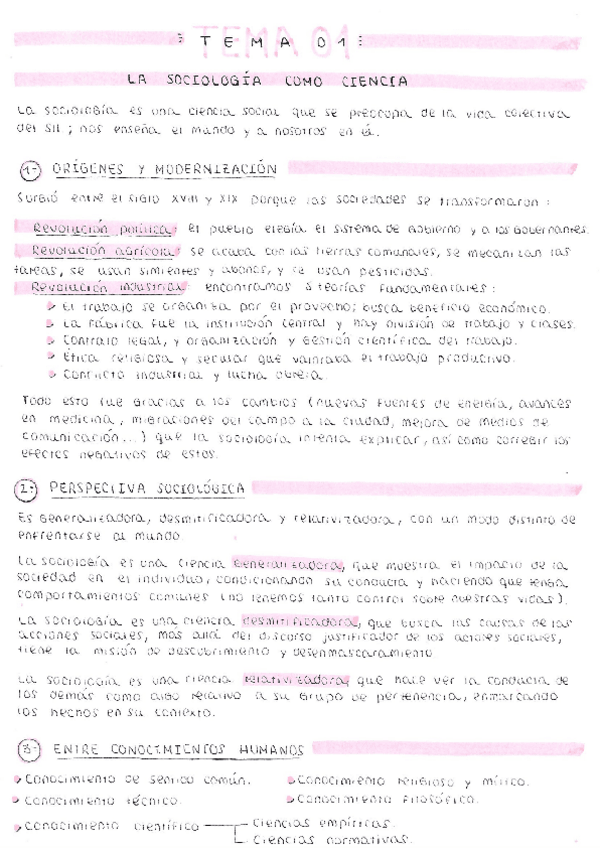 TEMA 01
LA SOCIOLOGÍA COMO CIENCIA
La sociología es una ciencia social que se preocupa de la vida colectiva
del SH; nos enseña el mundo y a nosotros en él.
1- ORÍGENES Y MODERNIZACIÓN
Surgió entre el siglo XVIII y XIX porque las sociedades se transformaron:
Revolución política: el pueblo elegía el sistema de gobierno y a los gobernantes.
Revolución agrícola: se acaba con las tierras comunales, se mecanizan las
tareas, se usan simientes y abonos, y se usan pesticidas.
Revolución industrial: encontramos 5 teorías fundamentales:
El trabajo se organiza por el provecho; busca beneficio económico.
La fábrica fue la institución central y hay división de trabajo y clases.
Contrato legal, y organización y gestión científica del trabajo.
Ética religiosa y secular que valoraba el trabajo productivo.
Conflicto industrial y lucha obrera.
Todo esto fue gracias a los cambios (nuevas fuentes de energía, avances
en medicina, migraciones del campo a la ciudad, mejora de medios de
comunicación...) que la sociología intenta explicar, así como corregir los
efectos negativos de estos.
2- PERSPECTIVA SOCIOLÓGICA
Es generalizadora, desmitificadora y relativizadora, con un modo distinto de
enfrentarse al mundo.
La sociología es una ciencia generalizadora, que muestra el impacto de la
sociedad en el individuo, condicionando su conducta y haciendo que tenga
comportamientos comunes (no tenemos tanto control sobre nuestras vidas).
La sociología es una ciencia desmitificadora, que busca las causas de las
acciones sociales, más allá del discurso justificador de los actores sociales,
tiene la misión de descubrimiento y desenmascaramiento
La sociología es una ciencia relativizadora, que hace ver la conducta de
los demás como algo relativo a su grupo de pertenencia, enmarcando
los hechos en su contexto.
3- ENTRE CONOCIMIENTOS HUMANOS
Conocimiento de sentido común. Conocimiento religioso y mítico.
Conocimiento técnico. Conocimiento filosófico.
Conocimiento científico Ciencias empíricas.
Ciencias normativas.